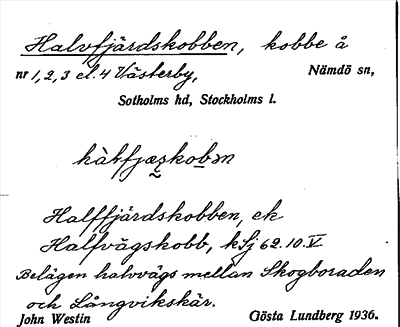 Halvfjärdskobben, kobbe å
nr 1, 2, 3 el. 4 Västerby, Nämdö sn,
Sotholms hd, Stockholms l.
hàłfjæʐkobən
Halffjärdskobben, ek
Halfvägskobb, kSj 62.10.V
Belägen halvvägs mellan Skogboraden
och Långvikskär.
John Westin Gösta Lundberg 1936.